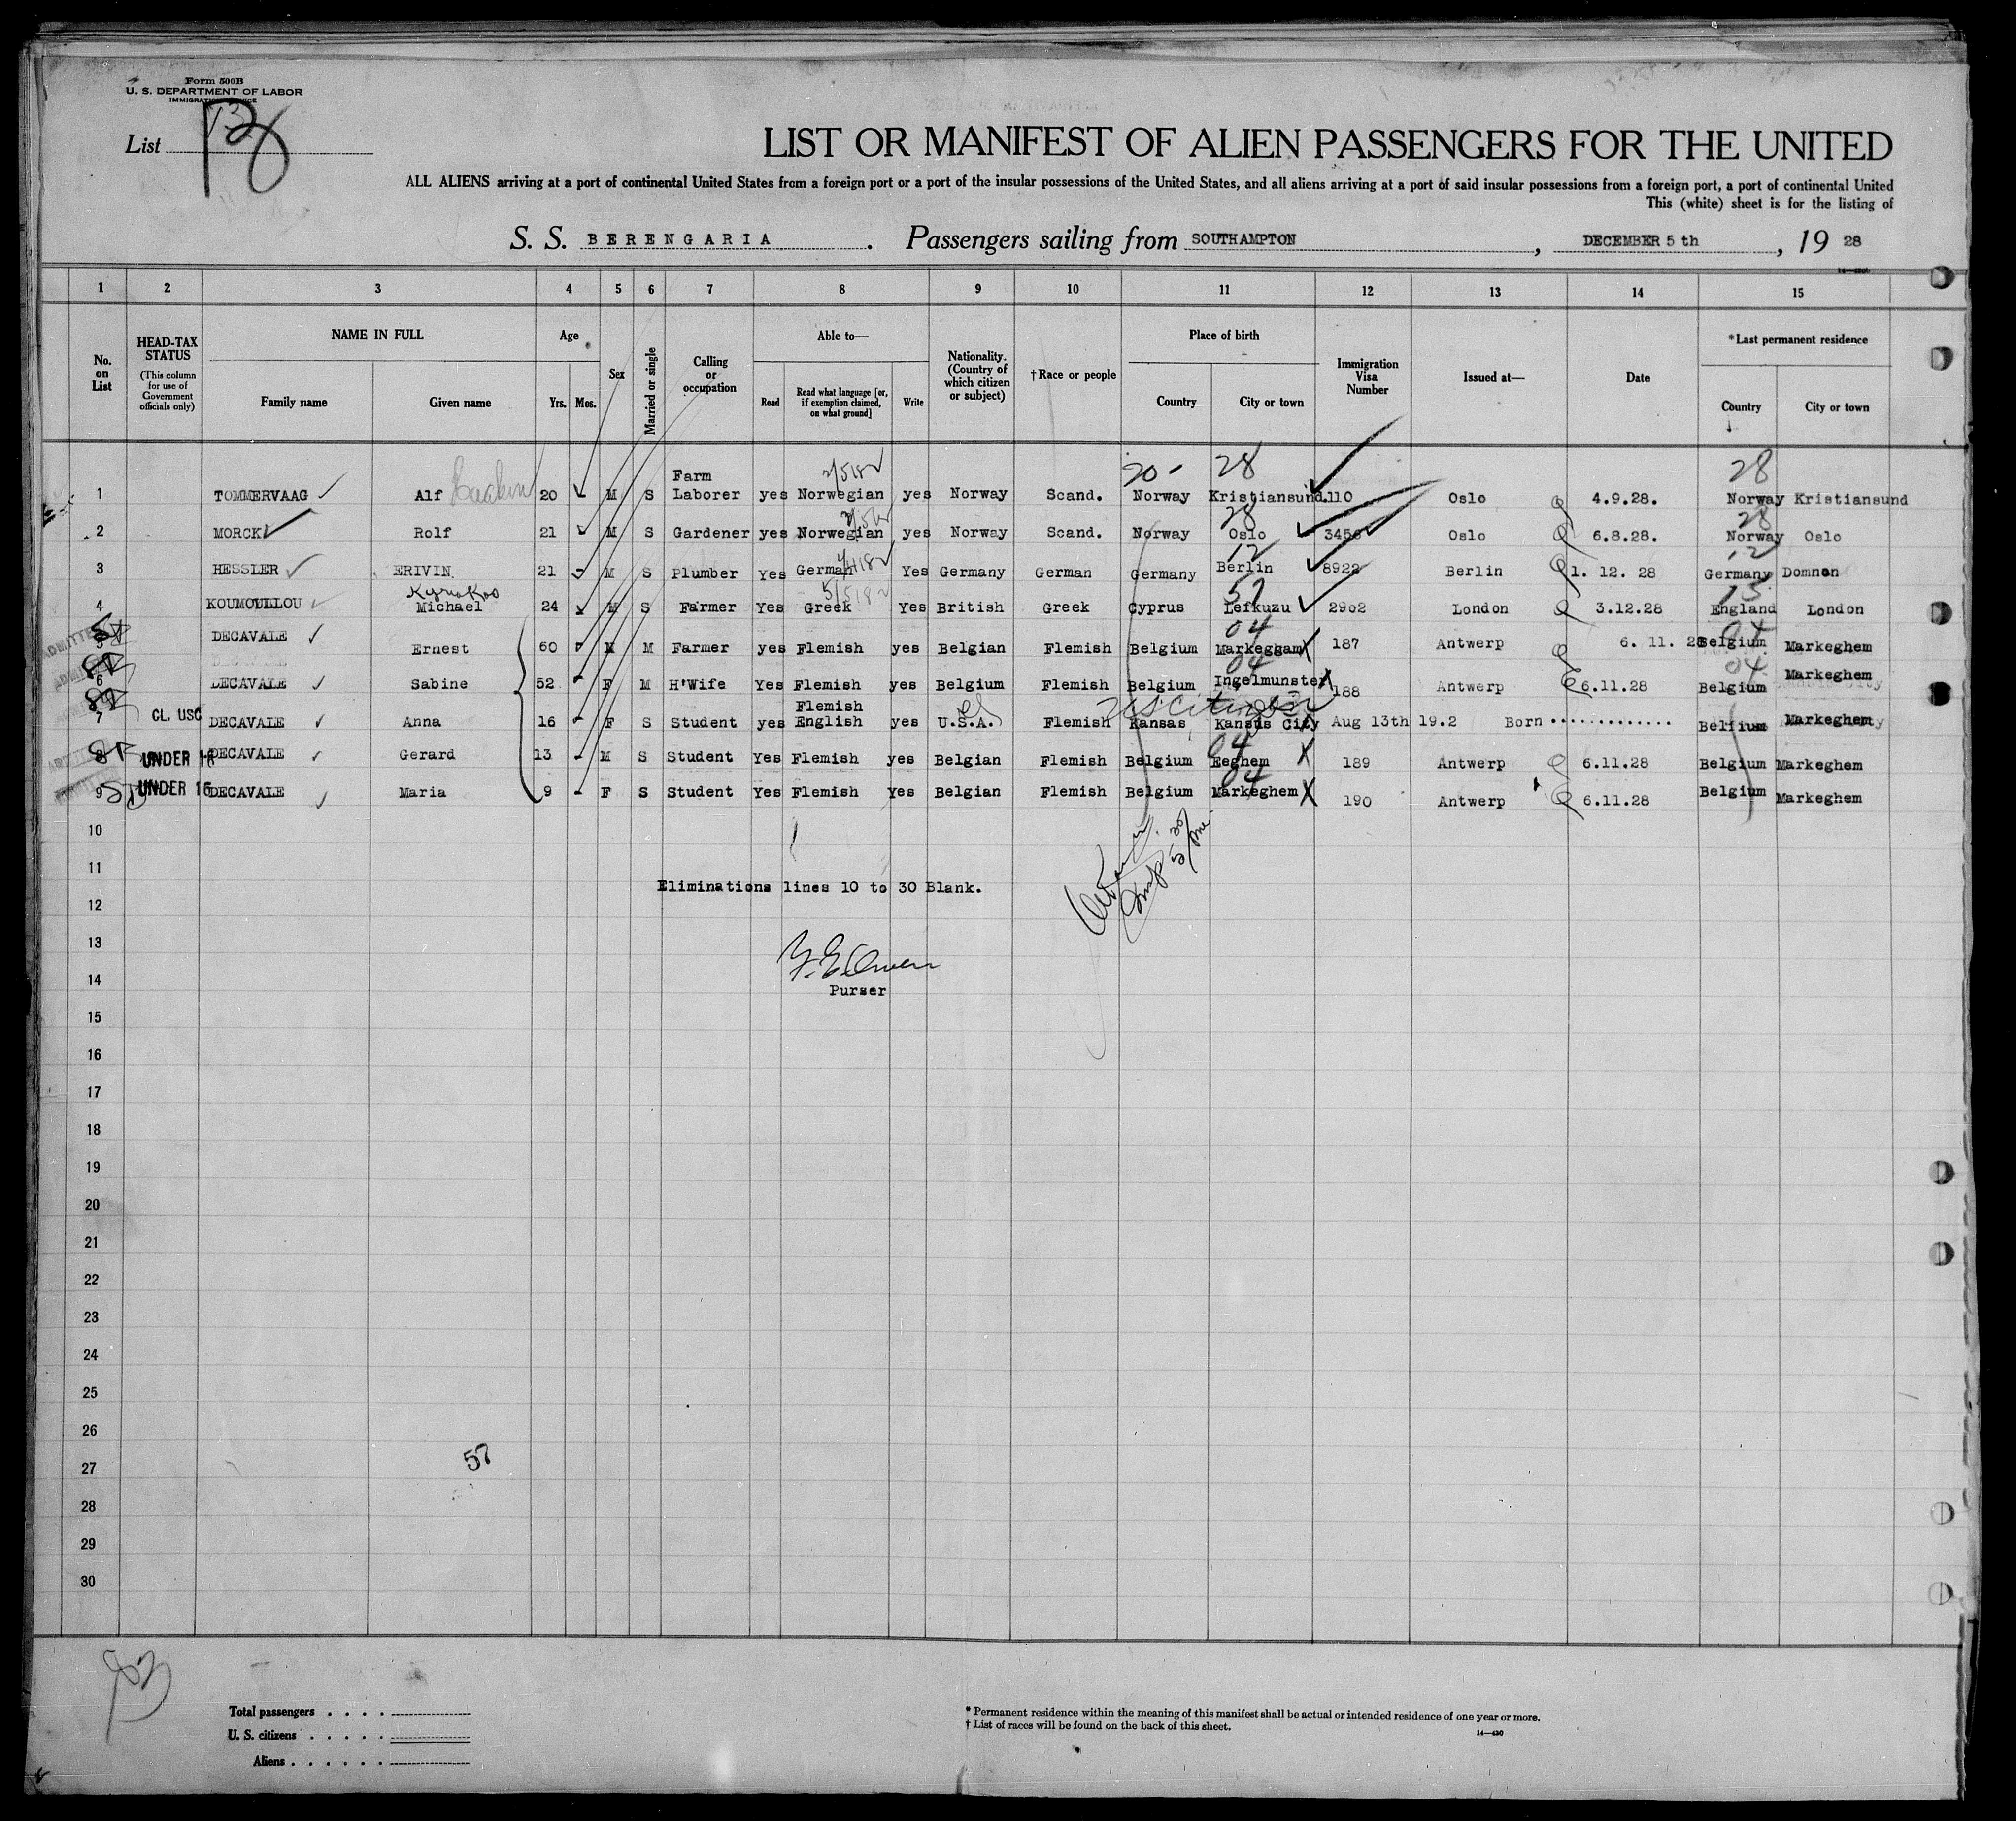 Form 500B
U. S. DEPARTMENT OF LABOR
List
LIST OR MANIFEST OF ALIEN PASSENGERS FOR THE UNITED
ALL ALIENS arriving at a port of continental United States from a foreign port or a port of the insular possessions of the United States, and all aliens arriving at a port of said insular possessions from a foreign port, a port of continental United
This (white) sheet is for the listing of
S. S. BERENGARIA . Passengers sailing from SOUTHAMPTON , DECEMBER 5 th , 19 28
1 2 3 4 5 6 7 8 9 10 11 12 13 14 15
No. on List
HEAD-TAX STATUS
(This column for use of Government officials only)
NAME IN FULL
Family name Given name
Age
Yrs. Mos.
Sex
Married or single
Calling or occupation
Able to—
Read
Read what language [or, if exemption claimed, on what ground]
Write
Nationality. (Country of which citizen or subject)
†Race or people
Place of birth
Country City or town
Immigration Visa Number
Issued at—
Date
*Last permanent residence
Country City or town
20- 28 28
1 TOMMERVAAG Alf 20 - M S Farm Laborer yes Norwegian yes Norway Scand. Norway Kristiansund 110 Oslo 4.9.28. Norway Kristiansund
28 28
2 MORCK Rolf 21 M S Gardener yes Norwegian yes Norway Scand. Norway Oslo 3456 Oslo 6.8.28. Norway Oslo
12 12
3 HESSLER ERIVIN 21 - M S Plumber Yes German Yes Germany German Germany Berlin 8922 Berlin 1. 12. 28 Germany Domnon
57
4 KOUMOULLOU Michael 24 M S Farmer Yes Greek Yes British Greek Cyprus Lefkuzu 2902 London 3.12.28 England London
04 04
5 DECAVALE Ernest 60 - M M Farmer yes Flemish yes Belgian Flemish Belgium Markeggam 187 Antwerp 6. 11. 28 Belgium Markeghem
04 04
6 DECAVALE Sabine 52 - F M H'Wife Yes Flemish yes Belgium Flemish Belgium Ingelmunster 188 Antwerp 6.11.28 Belgium Markeghem
US Citizen
7 CL. USC DECAVALE Anna 16 - F S Student yes Flemish English yes U.S.A. Flemish Kansas Kansas City Aug 13th 19.2 Born ............. Belfium Markeghem
04
8 UNDER 16 DECAVALE Gerard 13 - M S Student Yes Flemish yes Belgian Flemish Belgium Eeghem 189 Antwerp 6.11.28 Belgium Markeghem
04
9 UNDER 16 DECAVALE Maria 9 - F S Student Yes Flemish Yes Belgian Flemish Belgium Markeghem 190 Antwerp 6.11.28 Belgium Markeghem
10
11
Eliminations lines 10 to 30 Blank.
12
13
14
Purser
15
16
17
18
19
20
21
22
23
24
25
26
57
27
28
29
30
Total passengers . . . .
U. S. citizens . . . . .
Aliens . . . . . .
* Permanent residence within the meaning of this manifest shall be actual or intended residence of one year or more.
† List of races will be found on the back of this sheet.
14—430